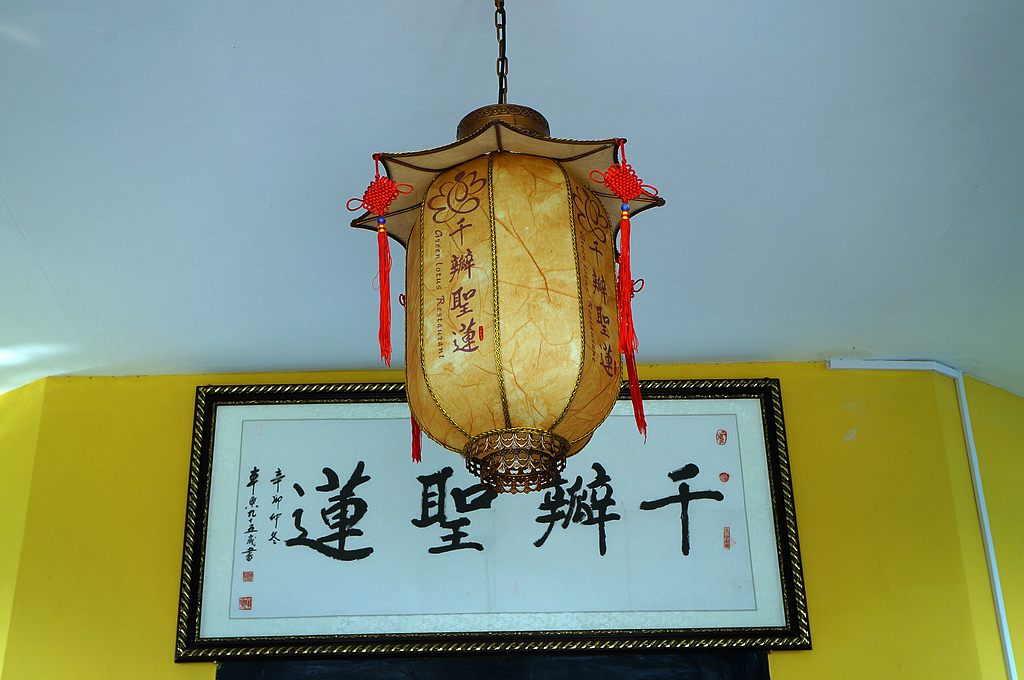 千瓣聖蓮
Green Lotus Restaurant
千瓣聖蓮
千瓣聖蓮
辛卯仲冬